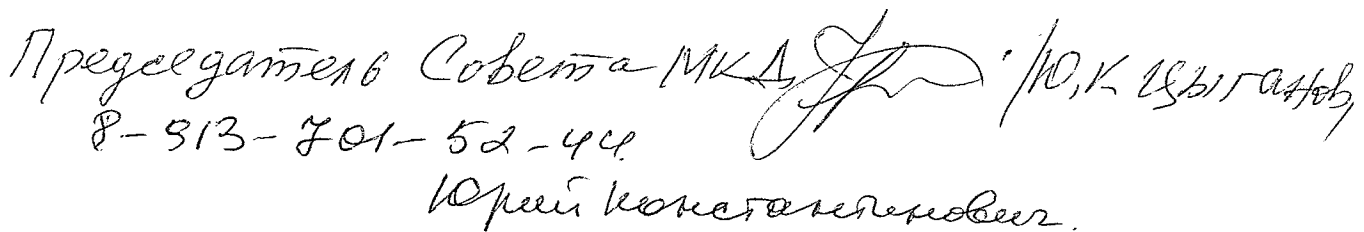 Председатель Совета МКД /Ю,К Цыганов,
8-913-701-52-44.
Юрий Константинович.